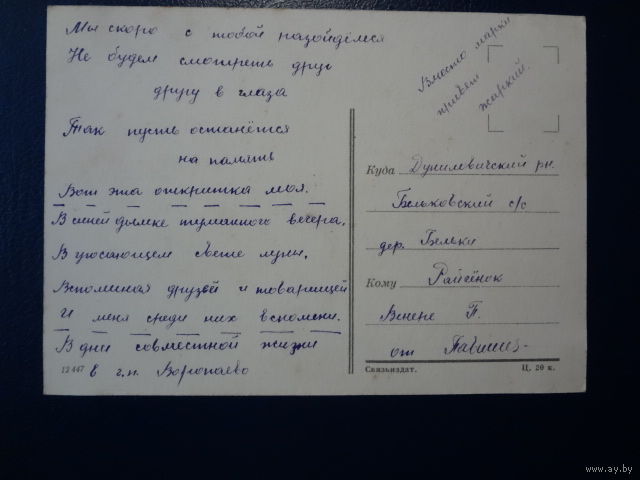 Мы скоро с тобой разойдёмся
Не будем смотреть друг
другу в глаза
Так пусть останется
на память
Вот эта открытка моя.
В синей дымке туманного вечера,
В угасающем свете луны,
Вспоминая друзей и товарищей
И меня среди них вспомни.
В дни совместной жизни
в г.п. Воропаево
12447
Вместо марки
привет
жаркий
Куда Дуниловичский рн.
Бельковский с/с
дер. Бельки
Кому
П.
от
Связьиздат. Ц. 20 к.
www.ay.by